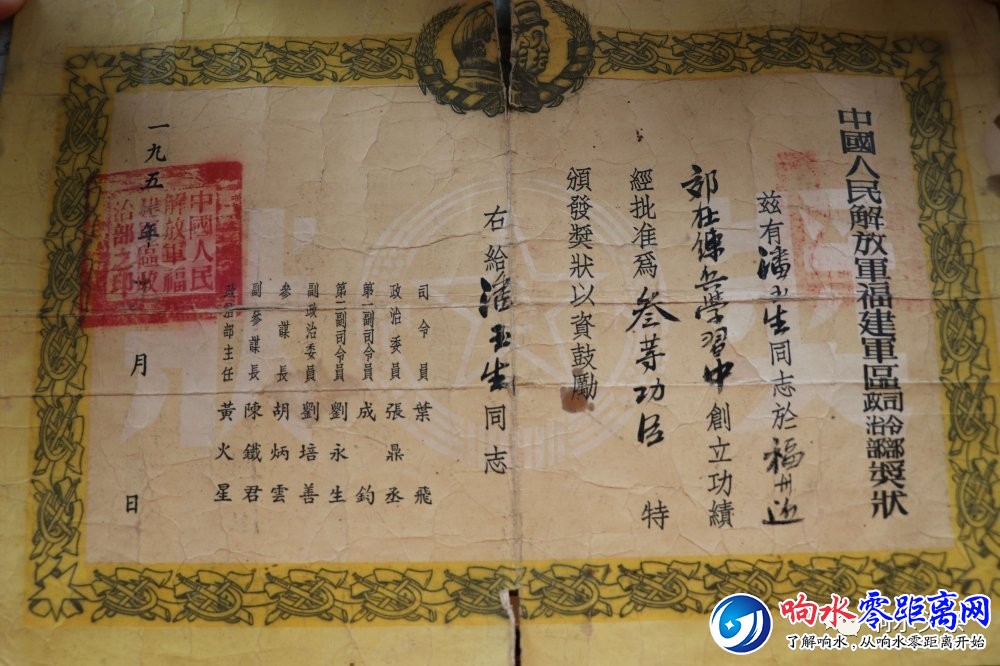 中國人民解放軍福建軍區司令部政治部獎狀
兹有潘玉生同志於福州近
郊在練兵學習中創立功績
經批准爲叁等功臣 特
頒發獎狀以資鼓勵
右給潘玉生同志
司令員 葉飛
政治委員 張鼎丞
第一副司令員 成鈞
第二副司令員 劉永生
副政治委員 劉培善
參謀長 胡炳雲
副參謀長 陳鐵君
政治部主任 黃火星
一九五 年 月 日
中國人民
解放軍福
建軍區政
治部之印
响水零距离网
了解响水,从响水零距离开始